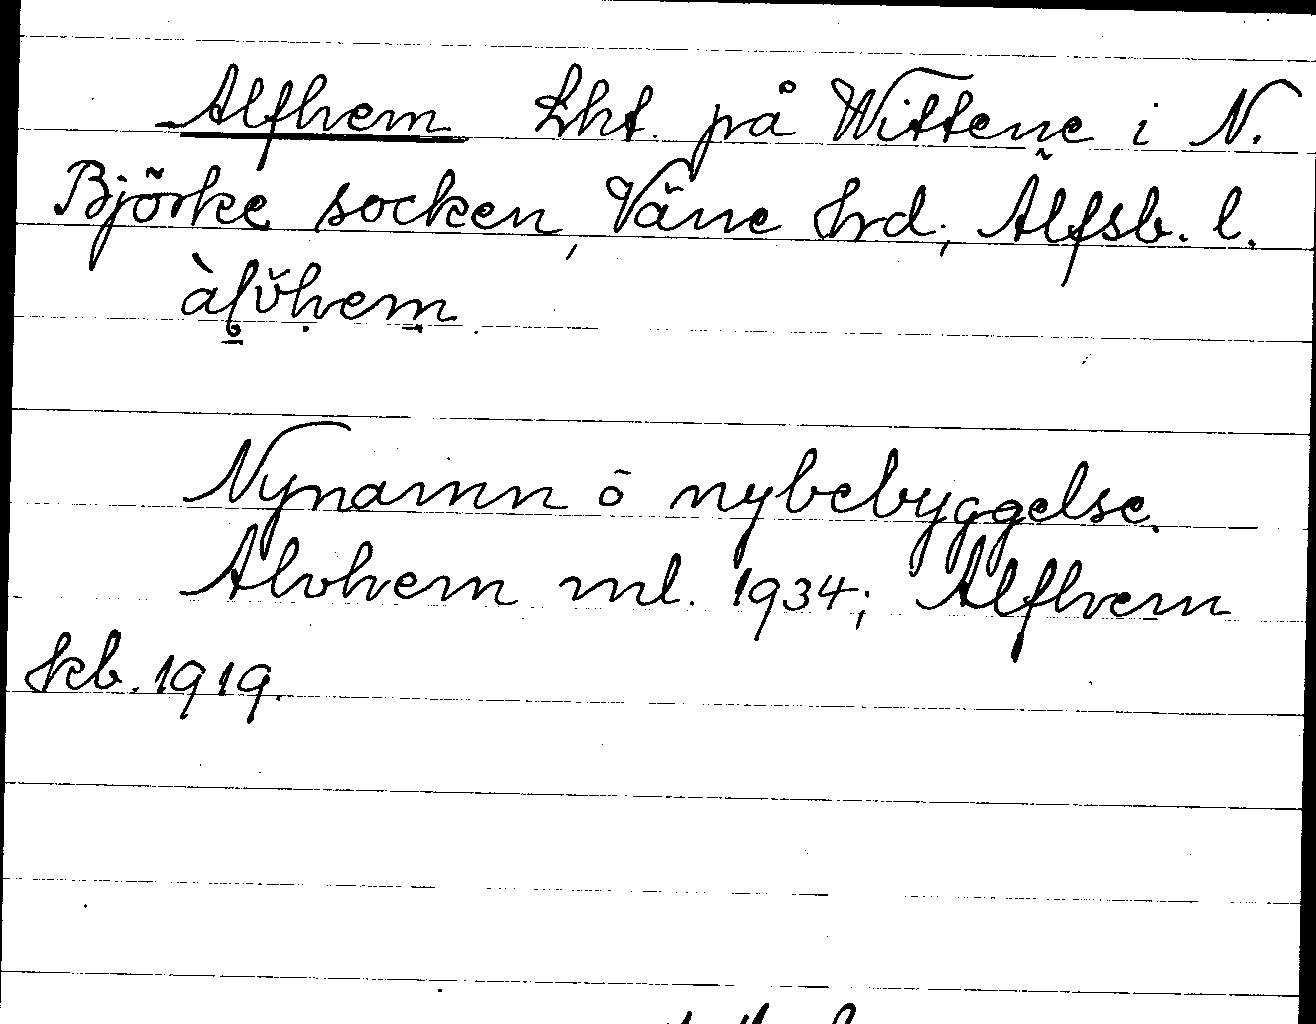 Alfhem Lht. på Wittene i N.
Björke socken, Väne hrd; Älfsb. l.
àl̥v̆hem.
Nynamn o nybebyggelse.
Alvhem ml. 1934; Alfhem
kb. 1919.